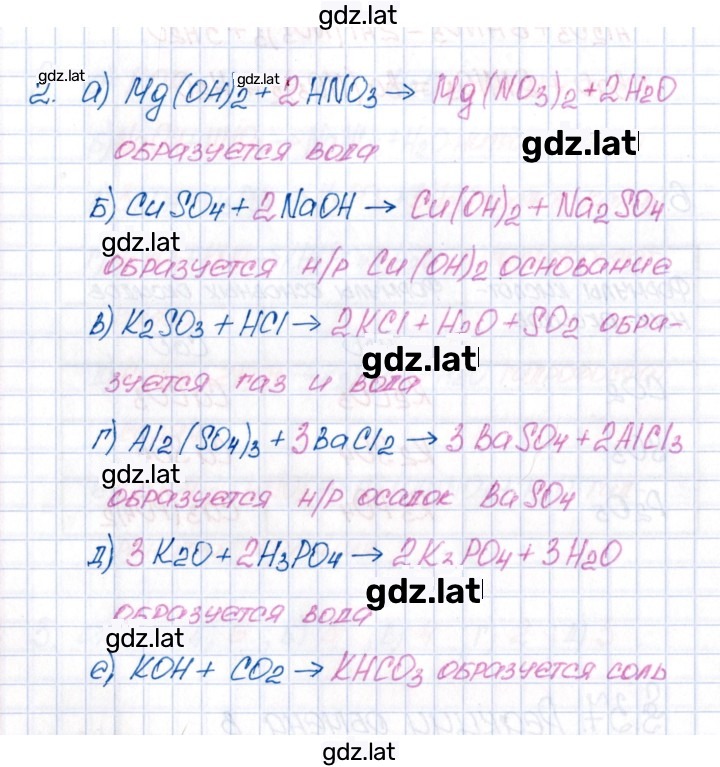 gdz.lat
gdz.lat gdz.lat
2. а) Mg(OH)2 + 2HNO3 → Mg(NO3)2 + 2H2O
образуется вода gdz.lat
б) CuSO4 + 2NaOH → Cu(OH)2 + Na2SO4
gdz.lat
образуется н/р Cu(OH)2 основание
в) K2SO3 + HCl → 2KCl + H2O + SO2 обра-
gdz.lat
зуется газ и вода
г) Al2(SO4)3 + 3BaCl2 → 3BaSO4 + 2AlCl3
gdz.lat
образуется н/р осадок BaSO4
д) 3K2O + 2H3PO4 → 2K3PO4 + 3H2O
gdz.lat
образуется вода
gdz.lat
е) KOH + CO2 → KHCO3 образуется соль
gdz.lat